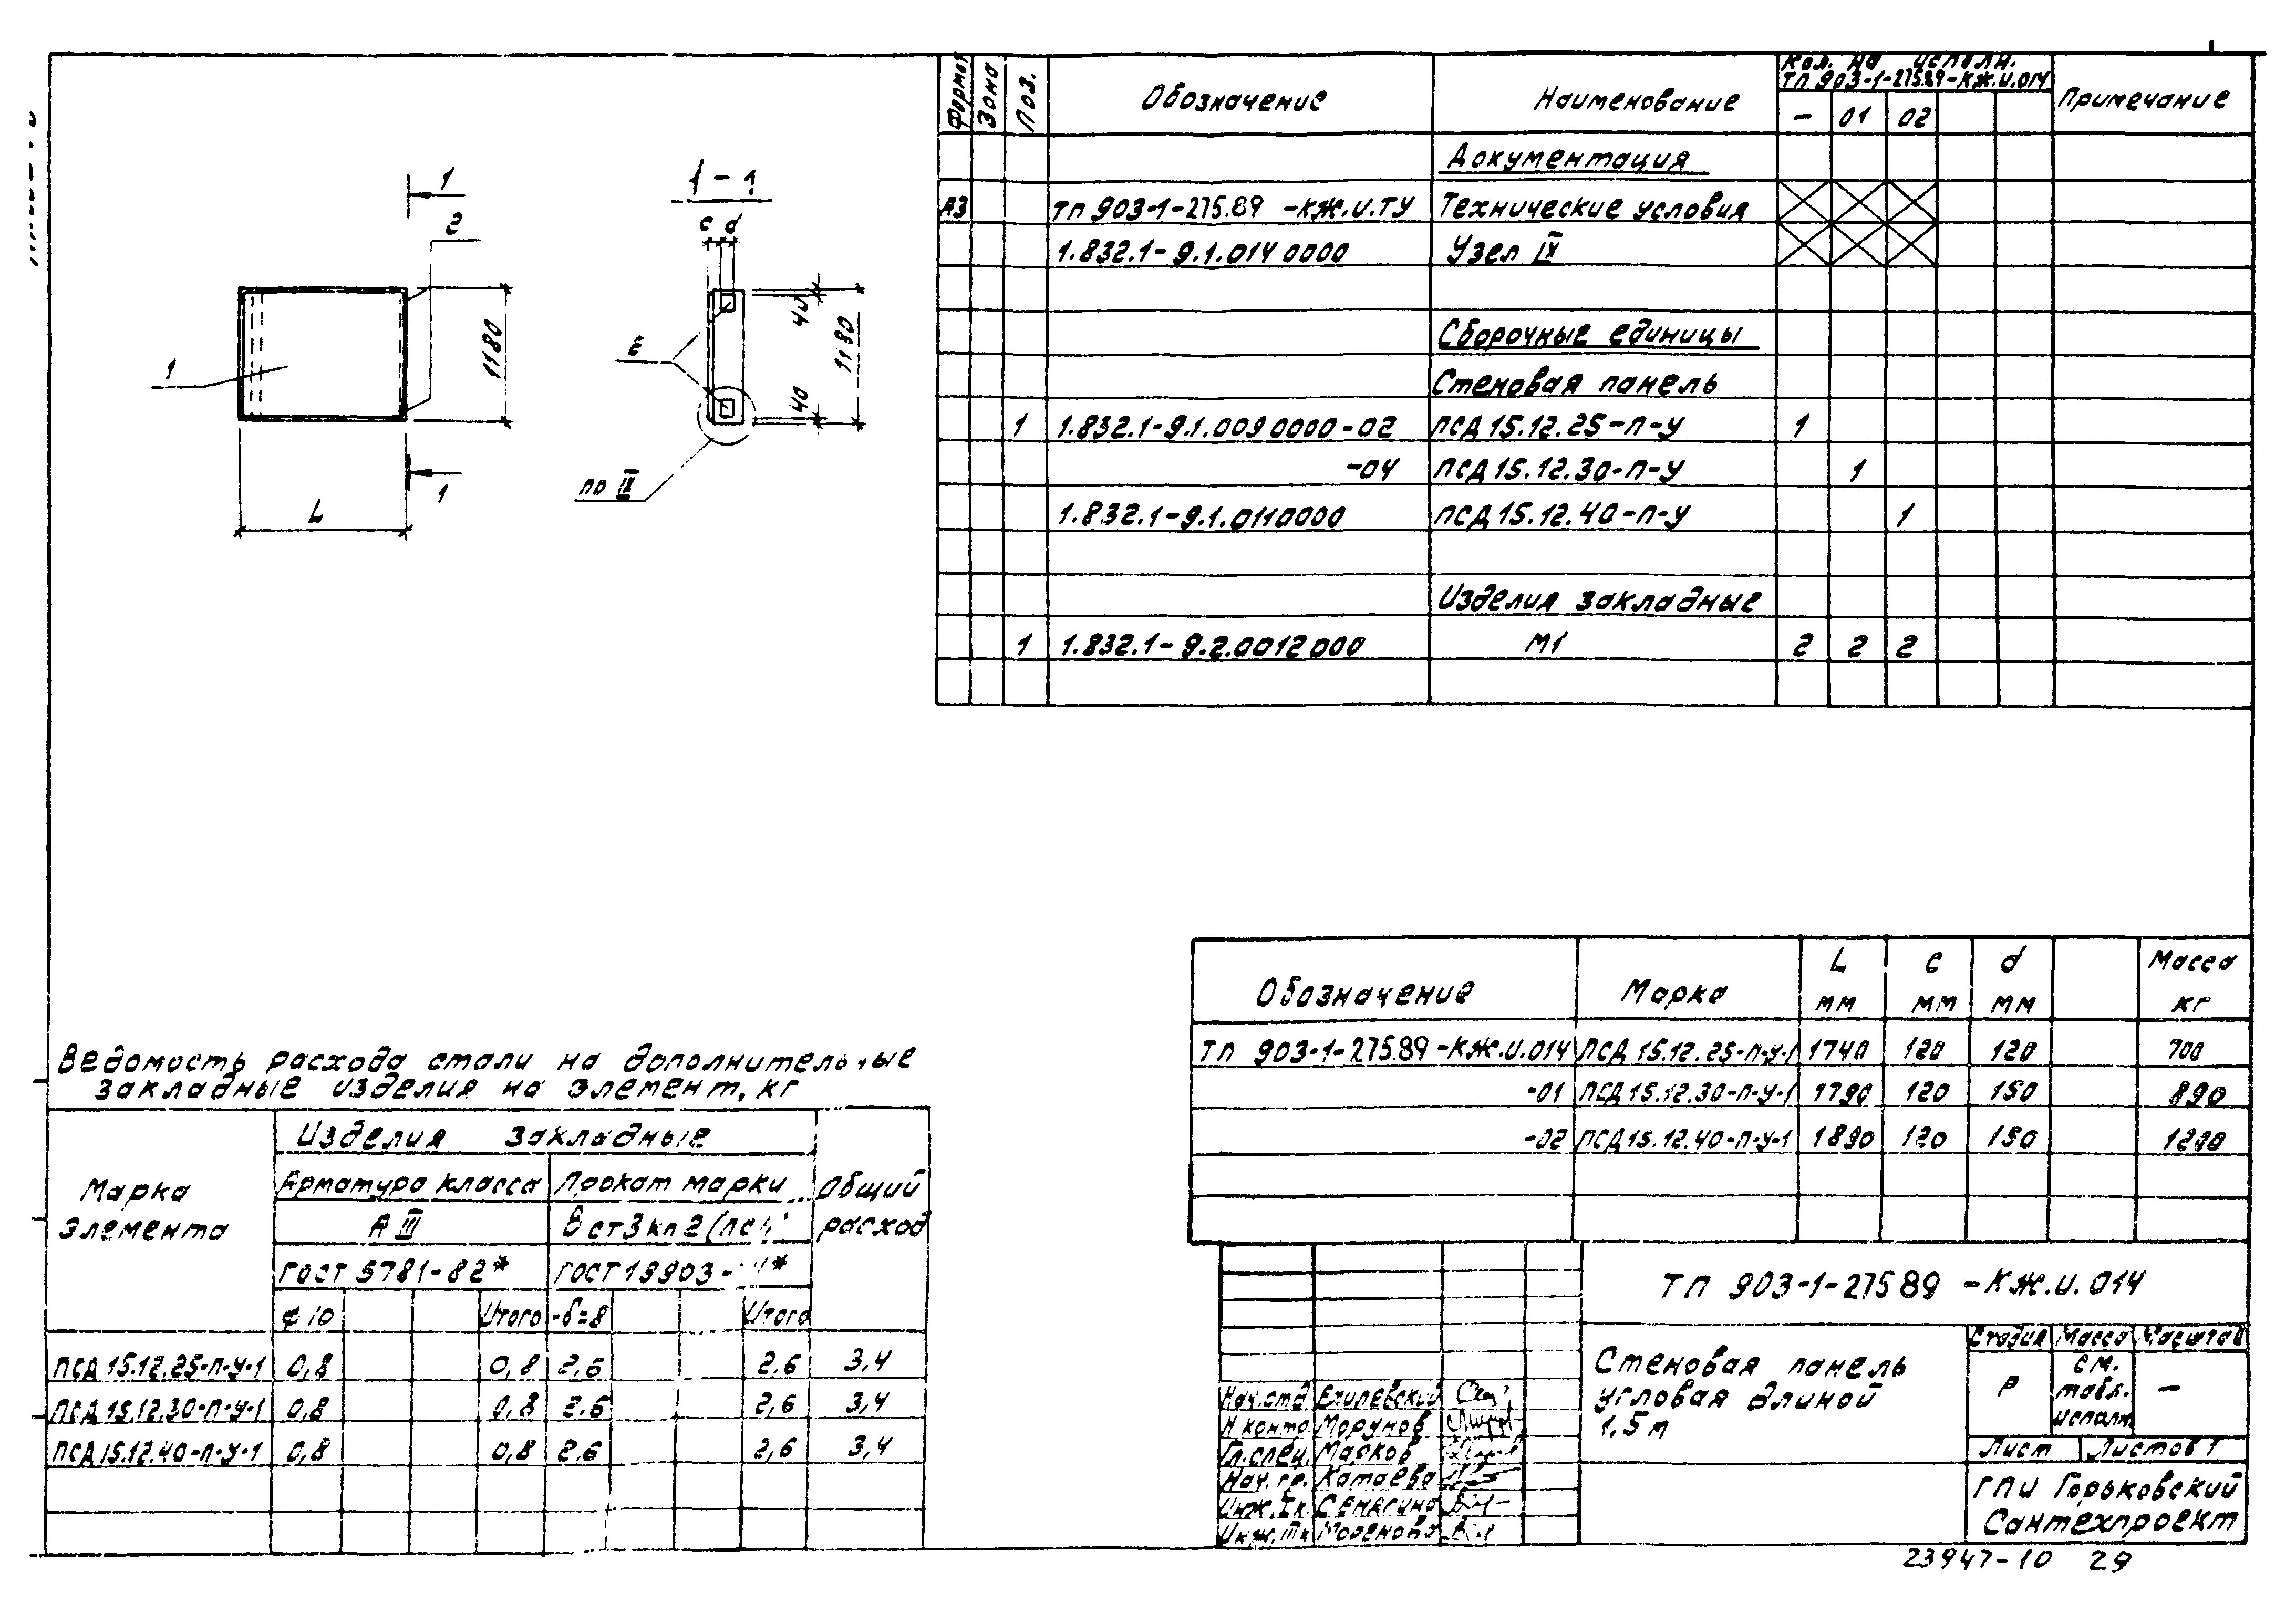 1
2
1180
1
L
1
1-1
c d
40
2
1180
40
по IX
Формат Зона Поз. Обозначение Наименование Кол. на исполн. ТП 903-1-275.89-КЖ.И.014 Примечание
- 01 02
Документация
А3 ТП 903-1-275.89 -КЖ.И.ТУ Технические условия
1.832.1-9.1.014 0000 Узел IX
Сборочные единицы
Стеновая панель
1 1.832.1-9.1.009 0000-02 ПСД 15.12.25-П-У 1
-04 ПСД 15.12.30-П-У 1
1.832.1-9.1.0110000 ПСД 15.12.40-П-У 1
Изделия закладные
1 1.832.1-9.2.0012000 М1 2 2 2
Обозначение Марка L мм c мм d мм Масса кг
ТП 903-1-275.89-КЖ.И.014 ПСД 15.12.25-П-У-1 1740 120 120 700
-01 ПСД 15.12.30-П-У-1 1790 120 150 890
-02 ПСД 15.12.40-П-У-1 1890 120 150
Ведомость расхода стали на дополнительные
закладные изделия на элемент, кг
Марка элемента Изделия закладные Общий расход
Арматура класса Прокат марки
А III В ст3кп2
ГОСТ 5781-82* ГОСТ 19903-
ф10 Итого -δ=8 Итого
ПСД 15.12.25-П-У-1 0,8 0,8 2.6 2.6 3,4
ПСД 15.12.30-П-У-1 0,8 0,8 2.6 2,6 3,4
ПСД 15.12.40-П-У-1 0,8 0,8 2.6 2,6 3,4
ТП 903-1-27589 -КЖ.И.014
Стеновая панель
угловая длиной
1,5 м
Стадия Масса Масштаб
Р см. табл. исполн. —
Лист Листов 1
Нач.отд.
Н.контр. Морунов
Гл.спец. Марков
Нач.гр. Катаева
Инж.Iк.
Инж.IIIк
ГПИ Горьковский
Сантехпроект
23947-10 29